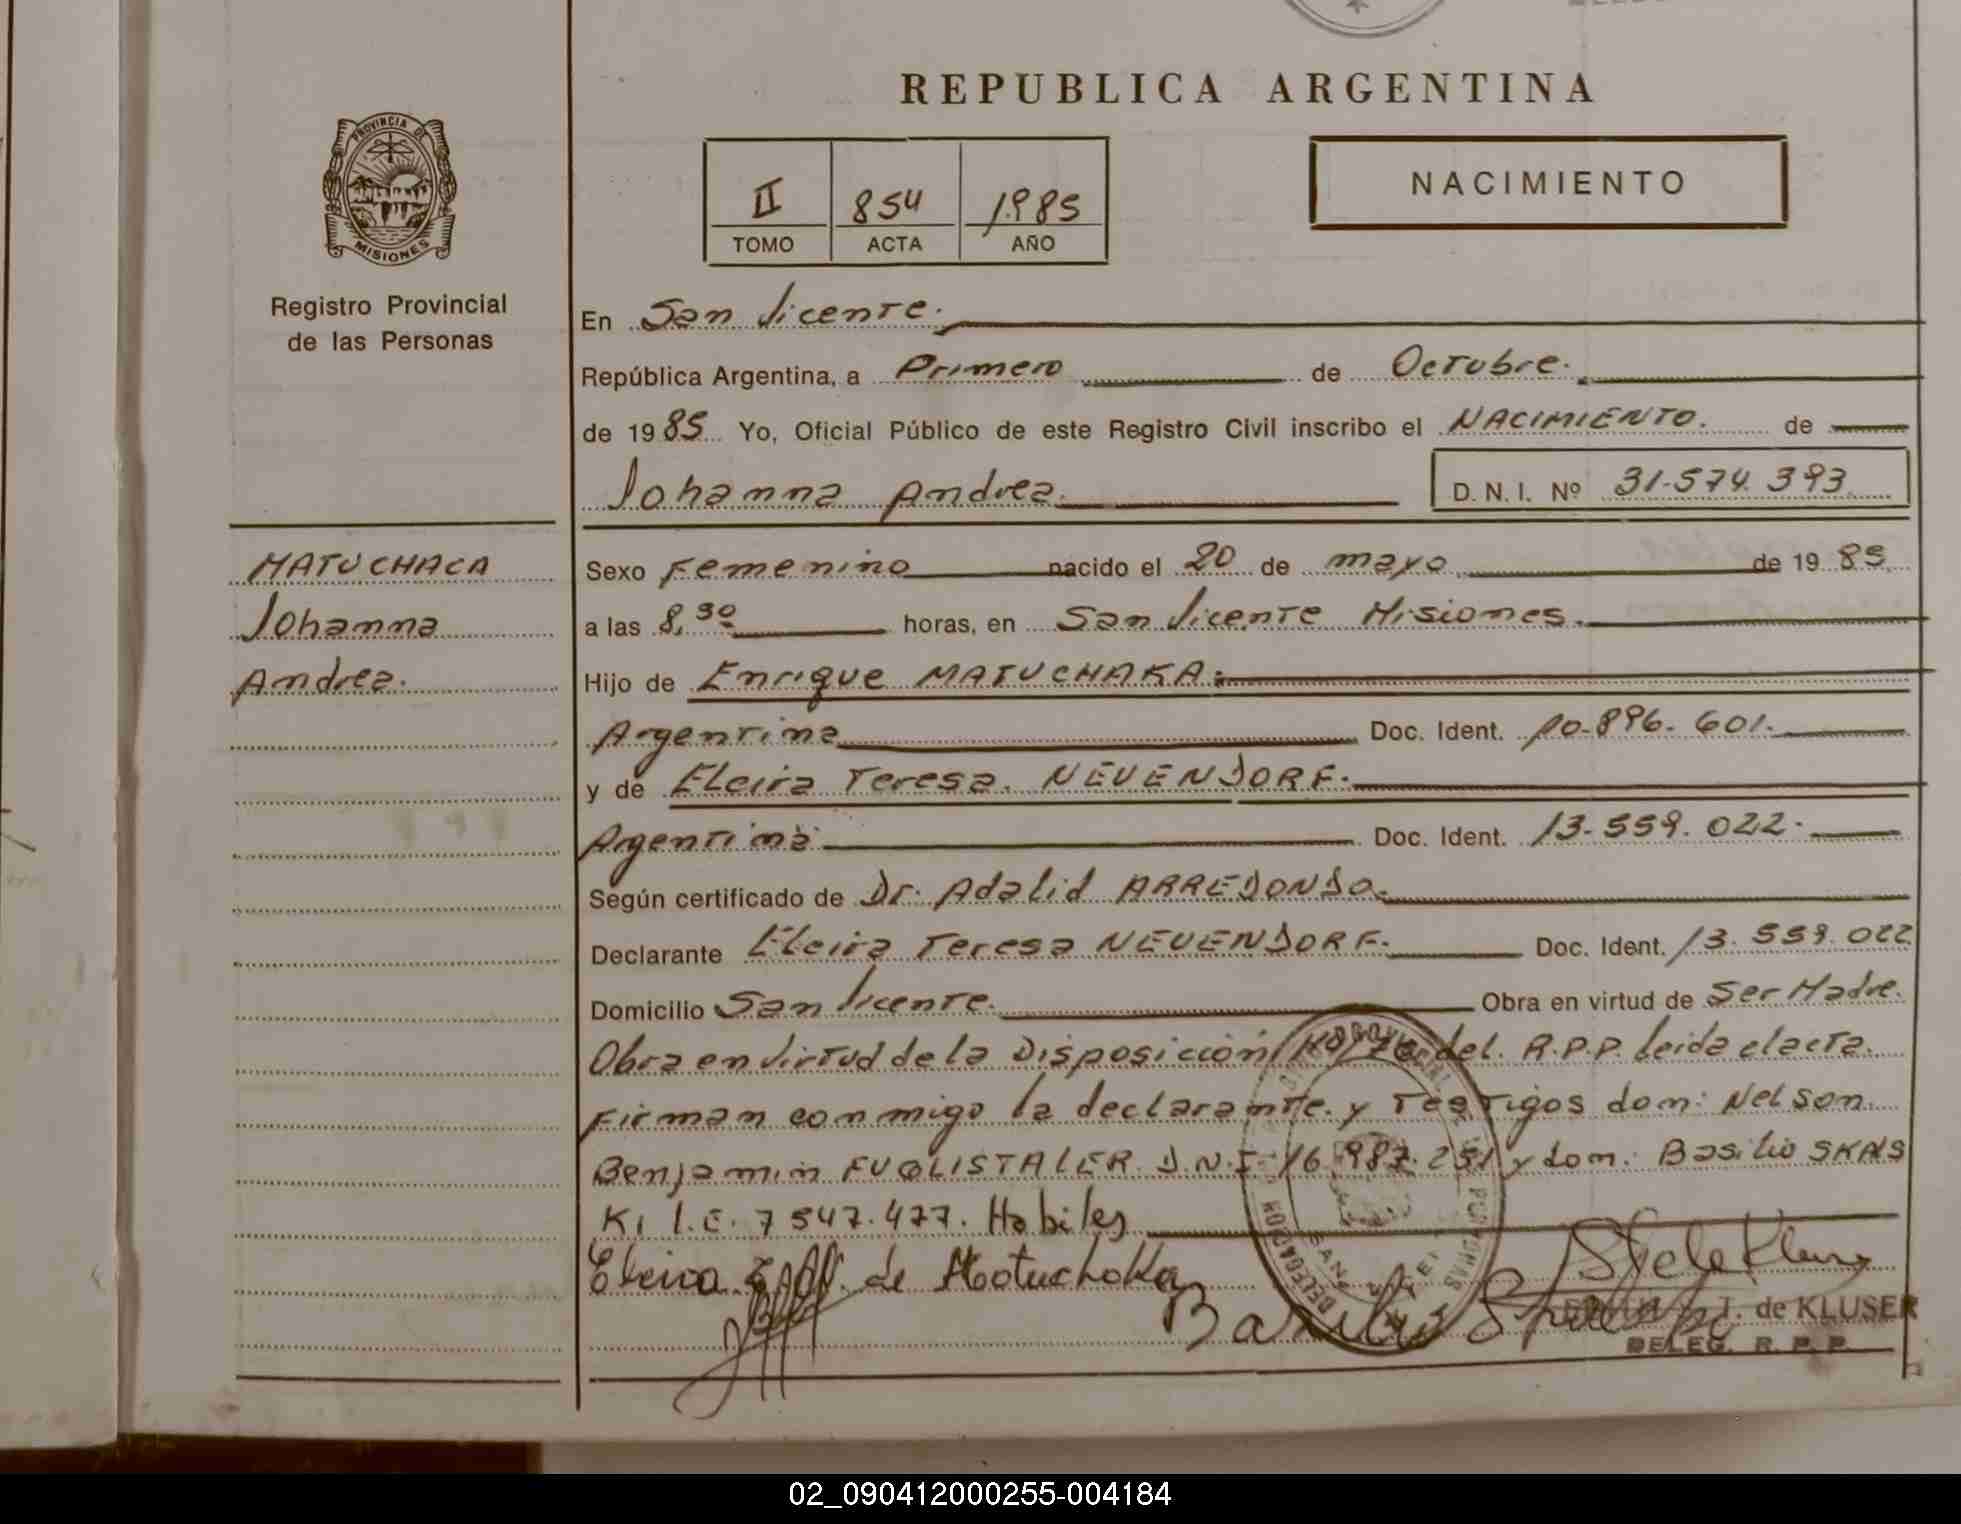 REPUBLICA ARGENTINA
PROVINCIA DE
MISIONES
Registro Provincial
de las Personas
II 854 1985
TOMO ACTA AÑO
NACIMIENTO
En San Vicente.
República Argentina, a Primero de Octubre.
de 1985 Yo, Oficial Público de este Registro Civil inscribo el NACIMIENTO. de
Johanna Andrea. D. N. I. Nº 31.574.393
MATUCHACA
Johanna
Andrea.
Sexo Femenino nacido el 20 de mayo de 1985
a las 8,30 horas, en San Vicente Misiones.
Hijo de Enrique MATUCHAKA.
Argentina Doc. Ident. 10.896.601.
y de Eleira Teresa. NEUENDORF.
Argentina Doc. Ident. 13.559.022.
Según certificado de Dr. Adalid ARREDONDO.
Declarante Eleira Teresa NEUENDORF. Doc. Ident. 13.559.022
Domicilio San Vicente. Obra en virtud de Ser Madre.
Obra en Virtud de la Disposición del. R.P.P. Leida el acta.
Firman conmigo la declarante. y Testigos don: Nelson.
Benjamin FUGLISTALER. D.N.I. 16.987.251 y don: Basilio SKALS
KI L.E. 7547.477. Habiles
Eleira de Matuchaka
Basilio
T. de KLUSER
DELEG. R. P. P.
02_090412000255-004184